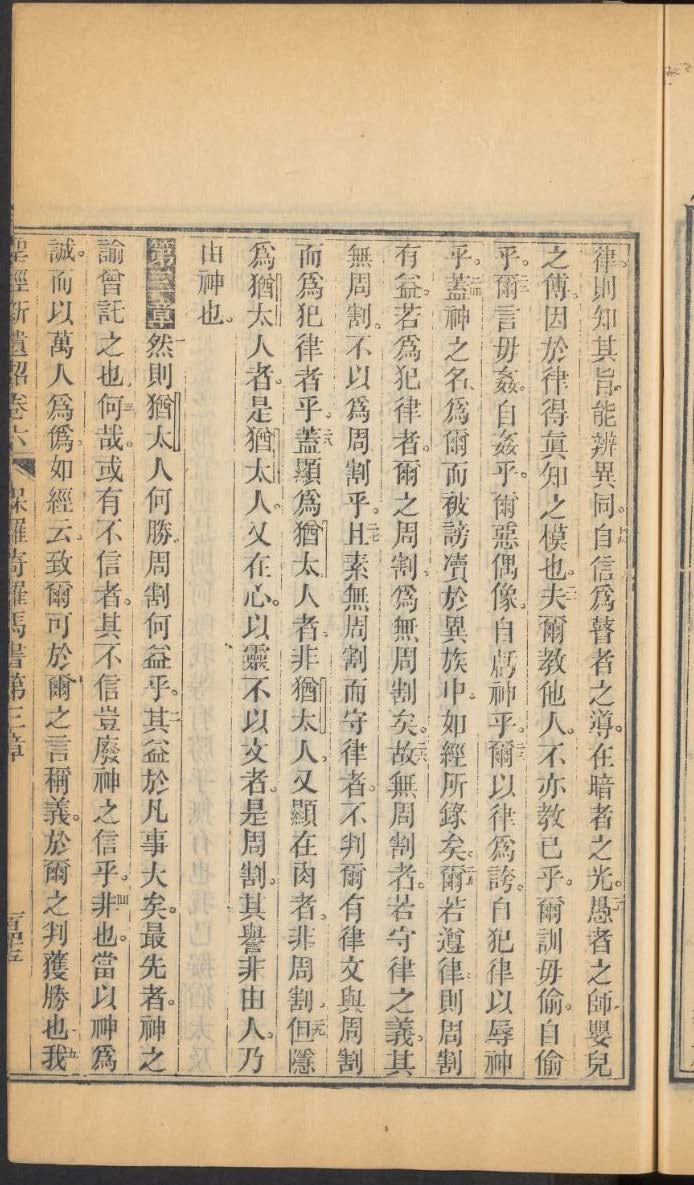 律。則知其旨。能辨異同。十九自信爲瞽者之導。在暗者之光。二十愚者之師。嬰兒
之傅。因於律得眞知之模也。二一夫爾教他人。不亦教己乎。爾訓毋偷。自偷
乎。二二爾言毋姦。自姦乎。爾惡偶像。自虧神乎。二三爾以律爲誇。自犯律以辱神
乎。二四蓋神之名。爲爾而被謗讟於異族中。如經所錄矣。二五爾若遵律。則周割
有益。若爲犯律者。爾之周割。爲無周割矣。二六故無周割者。若守律之義。其
無周割。不以爲周割乎。二七且素無周割而守律者。不判爾有律文與周割
而爲犯律者乎。二八蓋顯爲猶太人者。非猶太人。又顯在肉者。非周割。二九但隱
爲猶太人者。是猶太人。又在心。以靈不以文者。是周割。其譽非由人。乃
由神也。
第三章一然則猶太人何勝。周割何益乎。二其益於凡事大矣。最先者。神之
諭曾託之也。三何哉。或有不信者。其不信豈廢神之信乎。四非也。當以神爲
誠。而以萬人爲僞。如經云。致爾可於爾之言稱義。於爾之判獲勝也。五我
聖經新遺詔卷六 保羅寄羅馬書第三章